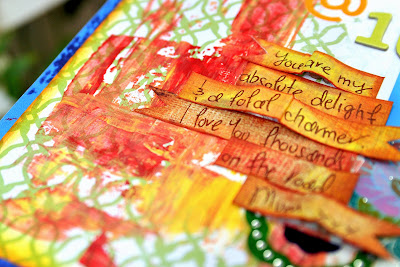 @ 1
You are my
absolute delight
& a total charmer
I love you thousands
on the road